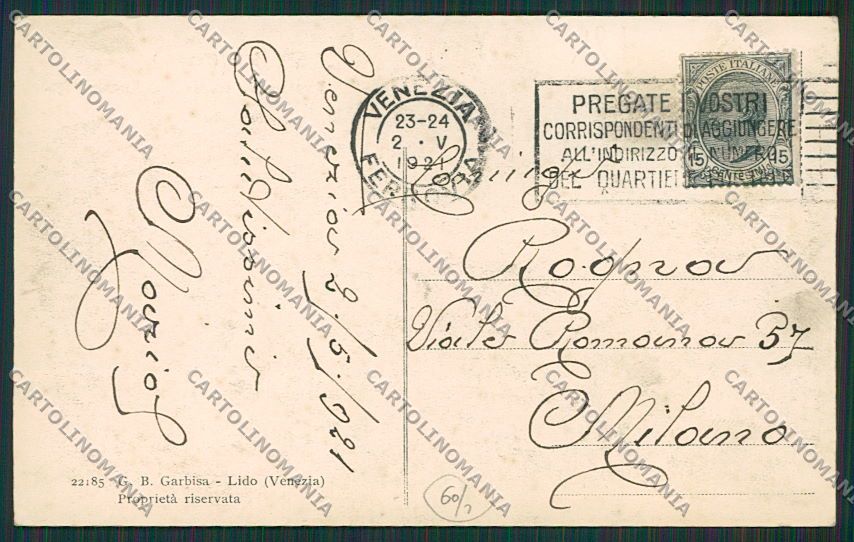 Venezia 2/5/921
Saluti
Mario
VENEZIA
23-24
2 · V
1921
FERROVIA
PREGATE I VOSTRI
CORRISPONDENTI DI AGGIUNGERE
ALL'INDIRIZZO IL NUMERO
DEL QUARTIERE POSTALE
POSTE ITALIANE
15 15
CENTESIMI
Rogna
Viale Romana 37
Milano
22185 G. B. Garbisa - Lido (Venezia)
Proprietà riservata
60/2
CARTOLINOMANIA